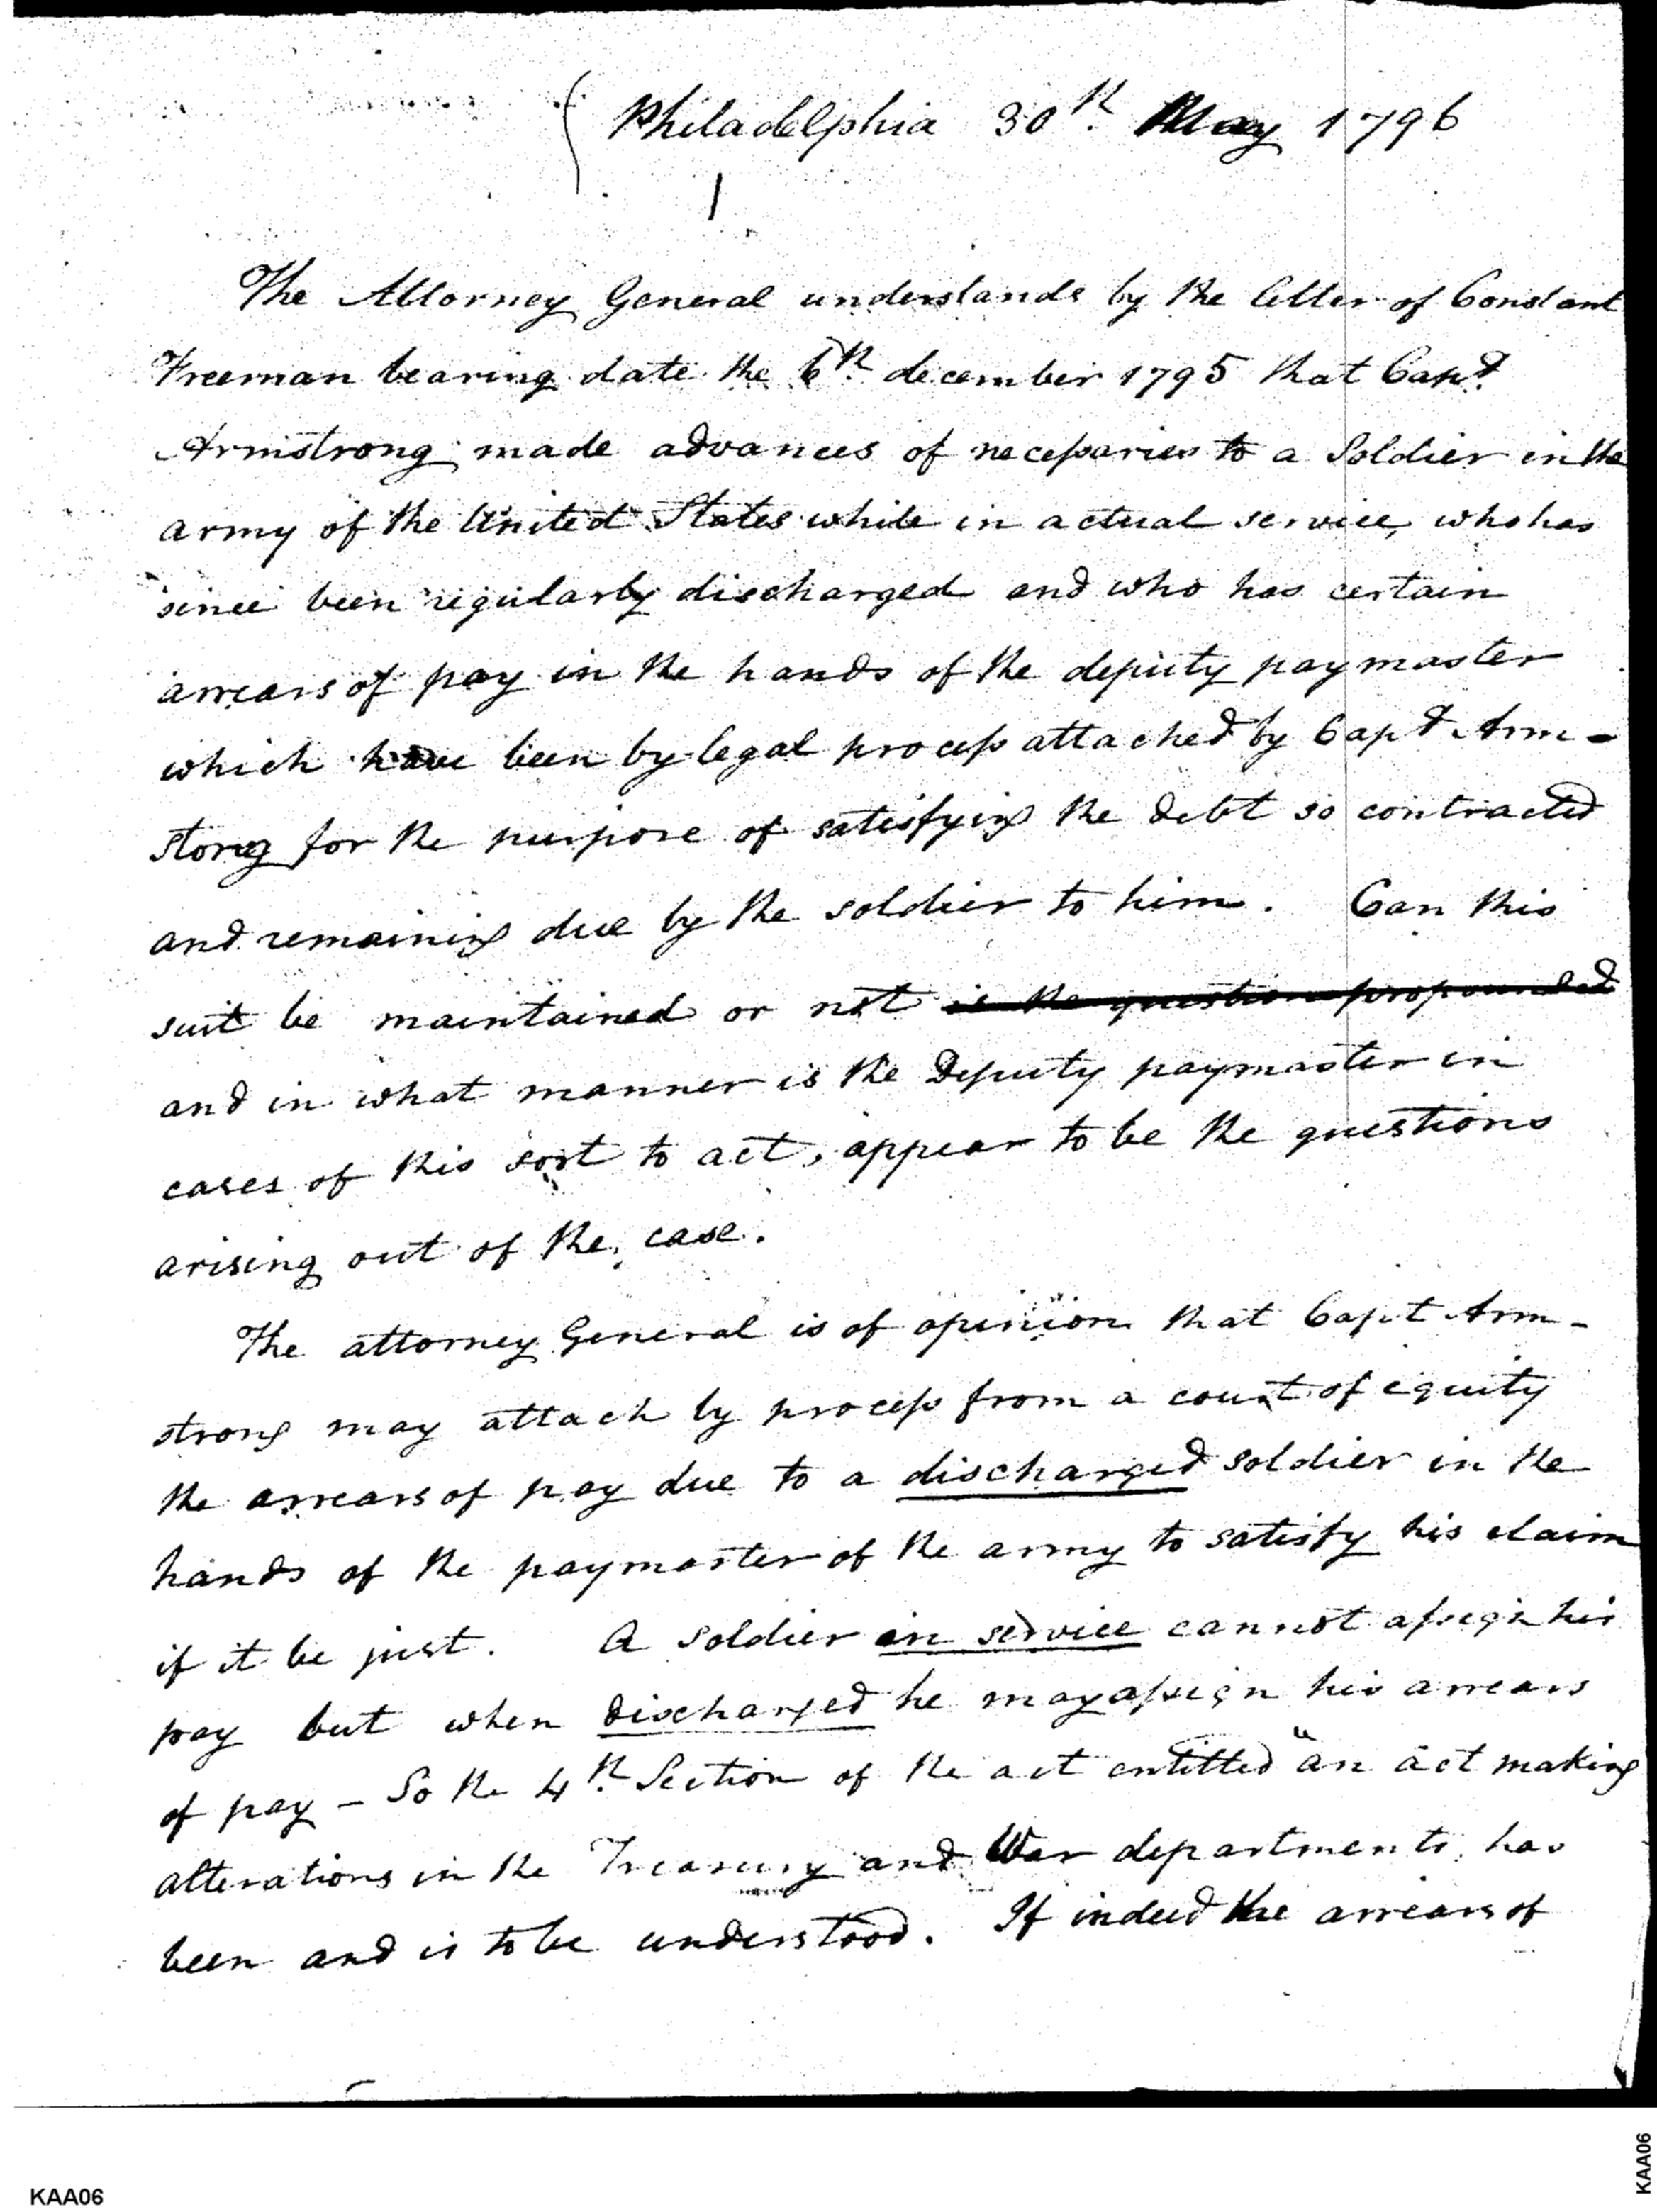 Philadelphia 30th May 1796
The Attorney General understands by the letter of Constant
Freeman bearing date the 6th december 1795 that Capt
Armstrong made advances of necessaries to a Soldier in the
army of the United States while in actual service, who has
since been regularly discharged and who has certain
arrears of pay in the hands of the deputy paymaster
which have been by legal process attached by Capt Arm-
strong for the purpose of satisfying the debt so contracted
and remaining due by the soldier to him. Can this
suit be maintained or not is the question propounded
and in what manner is the Deputy paymaster in
cases of this sort to act, appear to be the questions
arising out of the case.
The attorney General is of opinion that Capt Arm-
strong may attach by process from a court of equity
the arrears of pay due to a discharged soldier in the
hands of the paymaster of the army to satisfy his claim
if it be just. A soldier in service cannot assign his
pay but when discharged he may assign his arrears
of pay - So the 4th Section of the act entitled "an act making
alterations in the Treasury and War departments, has
been and is to be understood. If indeed the arrears of
KAA06
KAA06